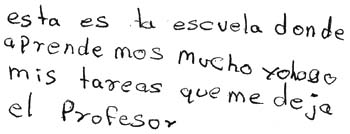 esta es la escvela donde
aprende mos mucho yohago
mis tareas que me deja
el Profesor